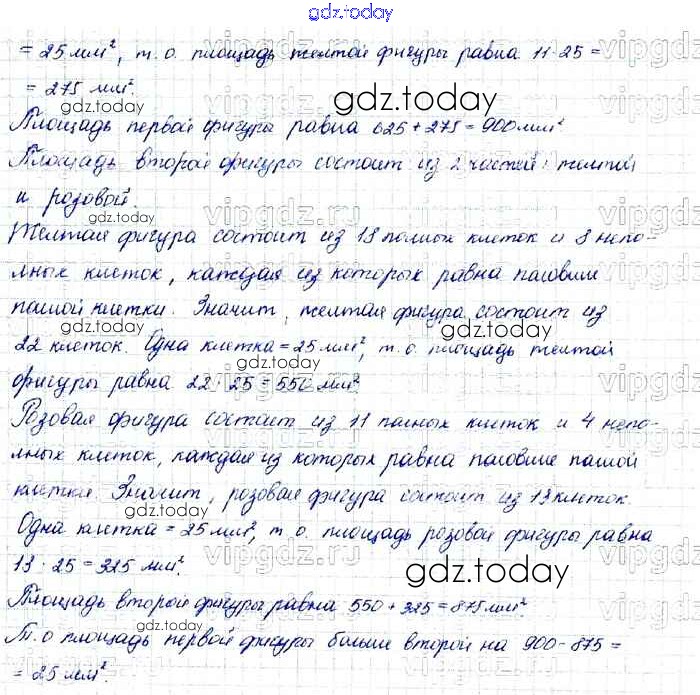 gdz.today
= 25 мм², т. о. площадь желтой фигуры равна 11·25 =
= 275 мм².
gdz.today
Площадь первой фигуры равна 625 + 275 = 900 мм²
Площадь второй фигуры состоит из 2 частей: желтой
и розовой.
gdz.today
Желтая фигура состоит из 18 полных клеток и 8 непо-
лных клеток, каждая из которых равна половине
полной клетки. Значит, желтая фигура состоит из
gdz.today
gdz.today
22 клеток. Одна клетка = 25 мм², т. о. площадь желтой
gdz.today
фигуры равна 22 · 25 = 550 мм².
Розовая фигура состоит из 11 полных клеток и 4 непо-
лных клеток, каждая из которых равна половине полной
клетки. Значит, розовая фигура состоит из 13 клеток.
Одна клетка = 25 мм², т. о. площадь розовой фигуры равна
13 · 25 = 325 мм².
gdz.today
gdz.today
Площадь второй фигуры равна 550 + 325 = 875 мм².
Т. о площадь первой фигуры больше второй на 900 – 875 =
= 25 мм².
gdz.today